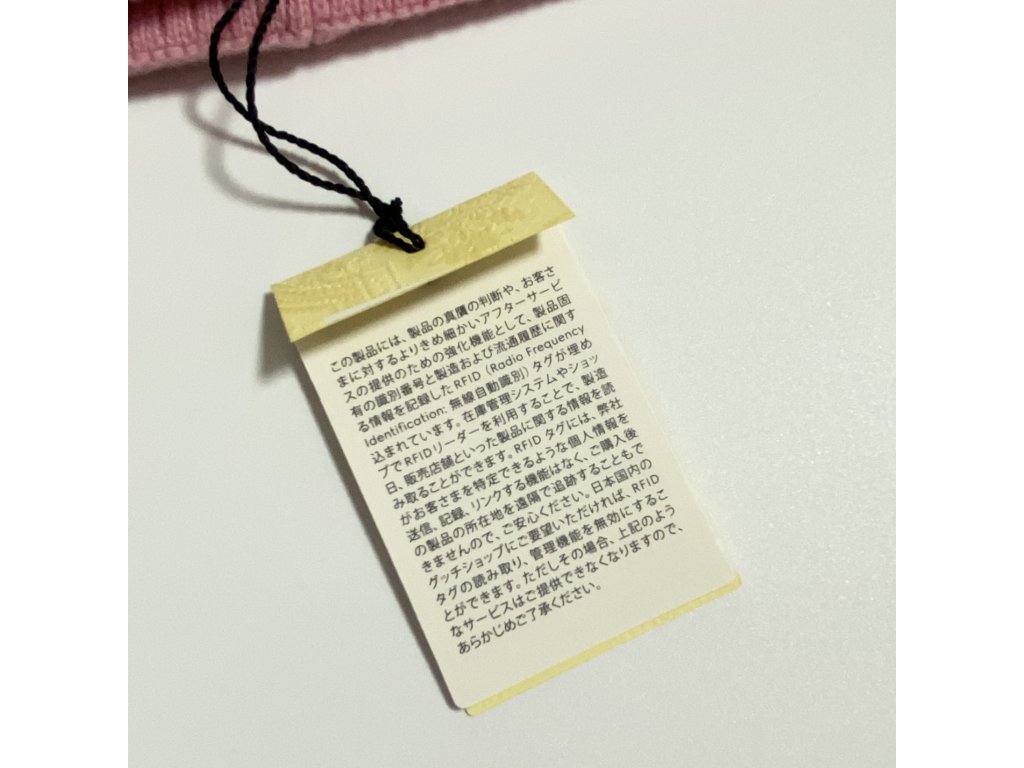 この製品には、製品の真贋の判断や、お客さ
まに対するよりきめ細かいアフターサービ
スの提供のための強化機能として、製品固
有の識別番号と製造および流通履歴に関す
る情報を記録したRFID（Radio Frequency
Identification: 無線自動識別）タグが埋め
込まれています。在庫管理システムやショッ
プでRFIDリーダーを利用することで、製造
日、販売店舗といった製品に関する情報を読
み取ることができます。RFIDタグには、弊社
がお客さまを特定できるような個人情報を
送信、記録、リンクする機能はなく、ご購入後
の製品の所在地を遠隔で追跡することもで
きませんので、ご安心ください。日本国内の
グッチショップにご要望いただければ、RFID
タグの読み取り、管理機能を無効にするこ
とができます。ただしその場合、上記のよう
なサービスはご提供できなくなりますので、
あらかじめご了承ください。